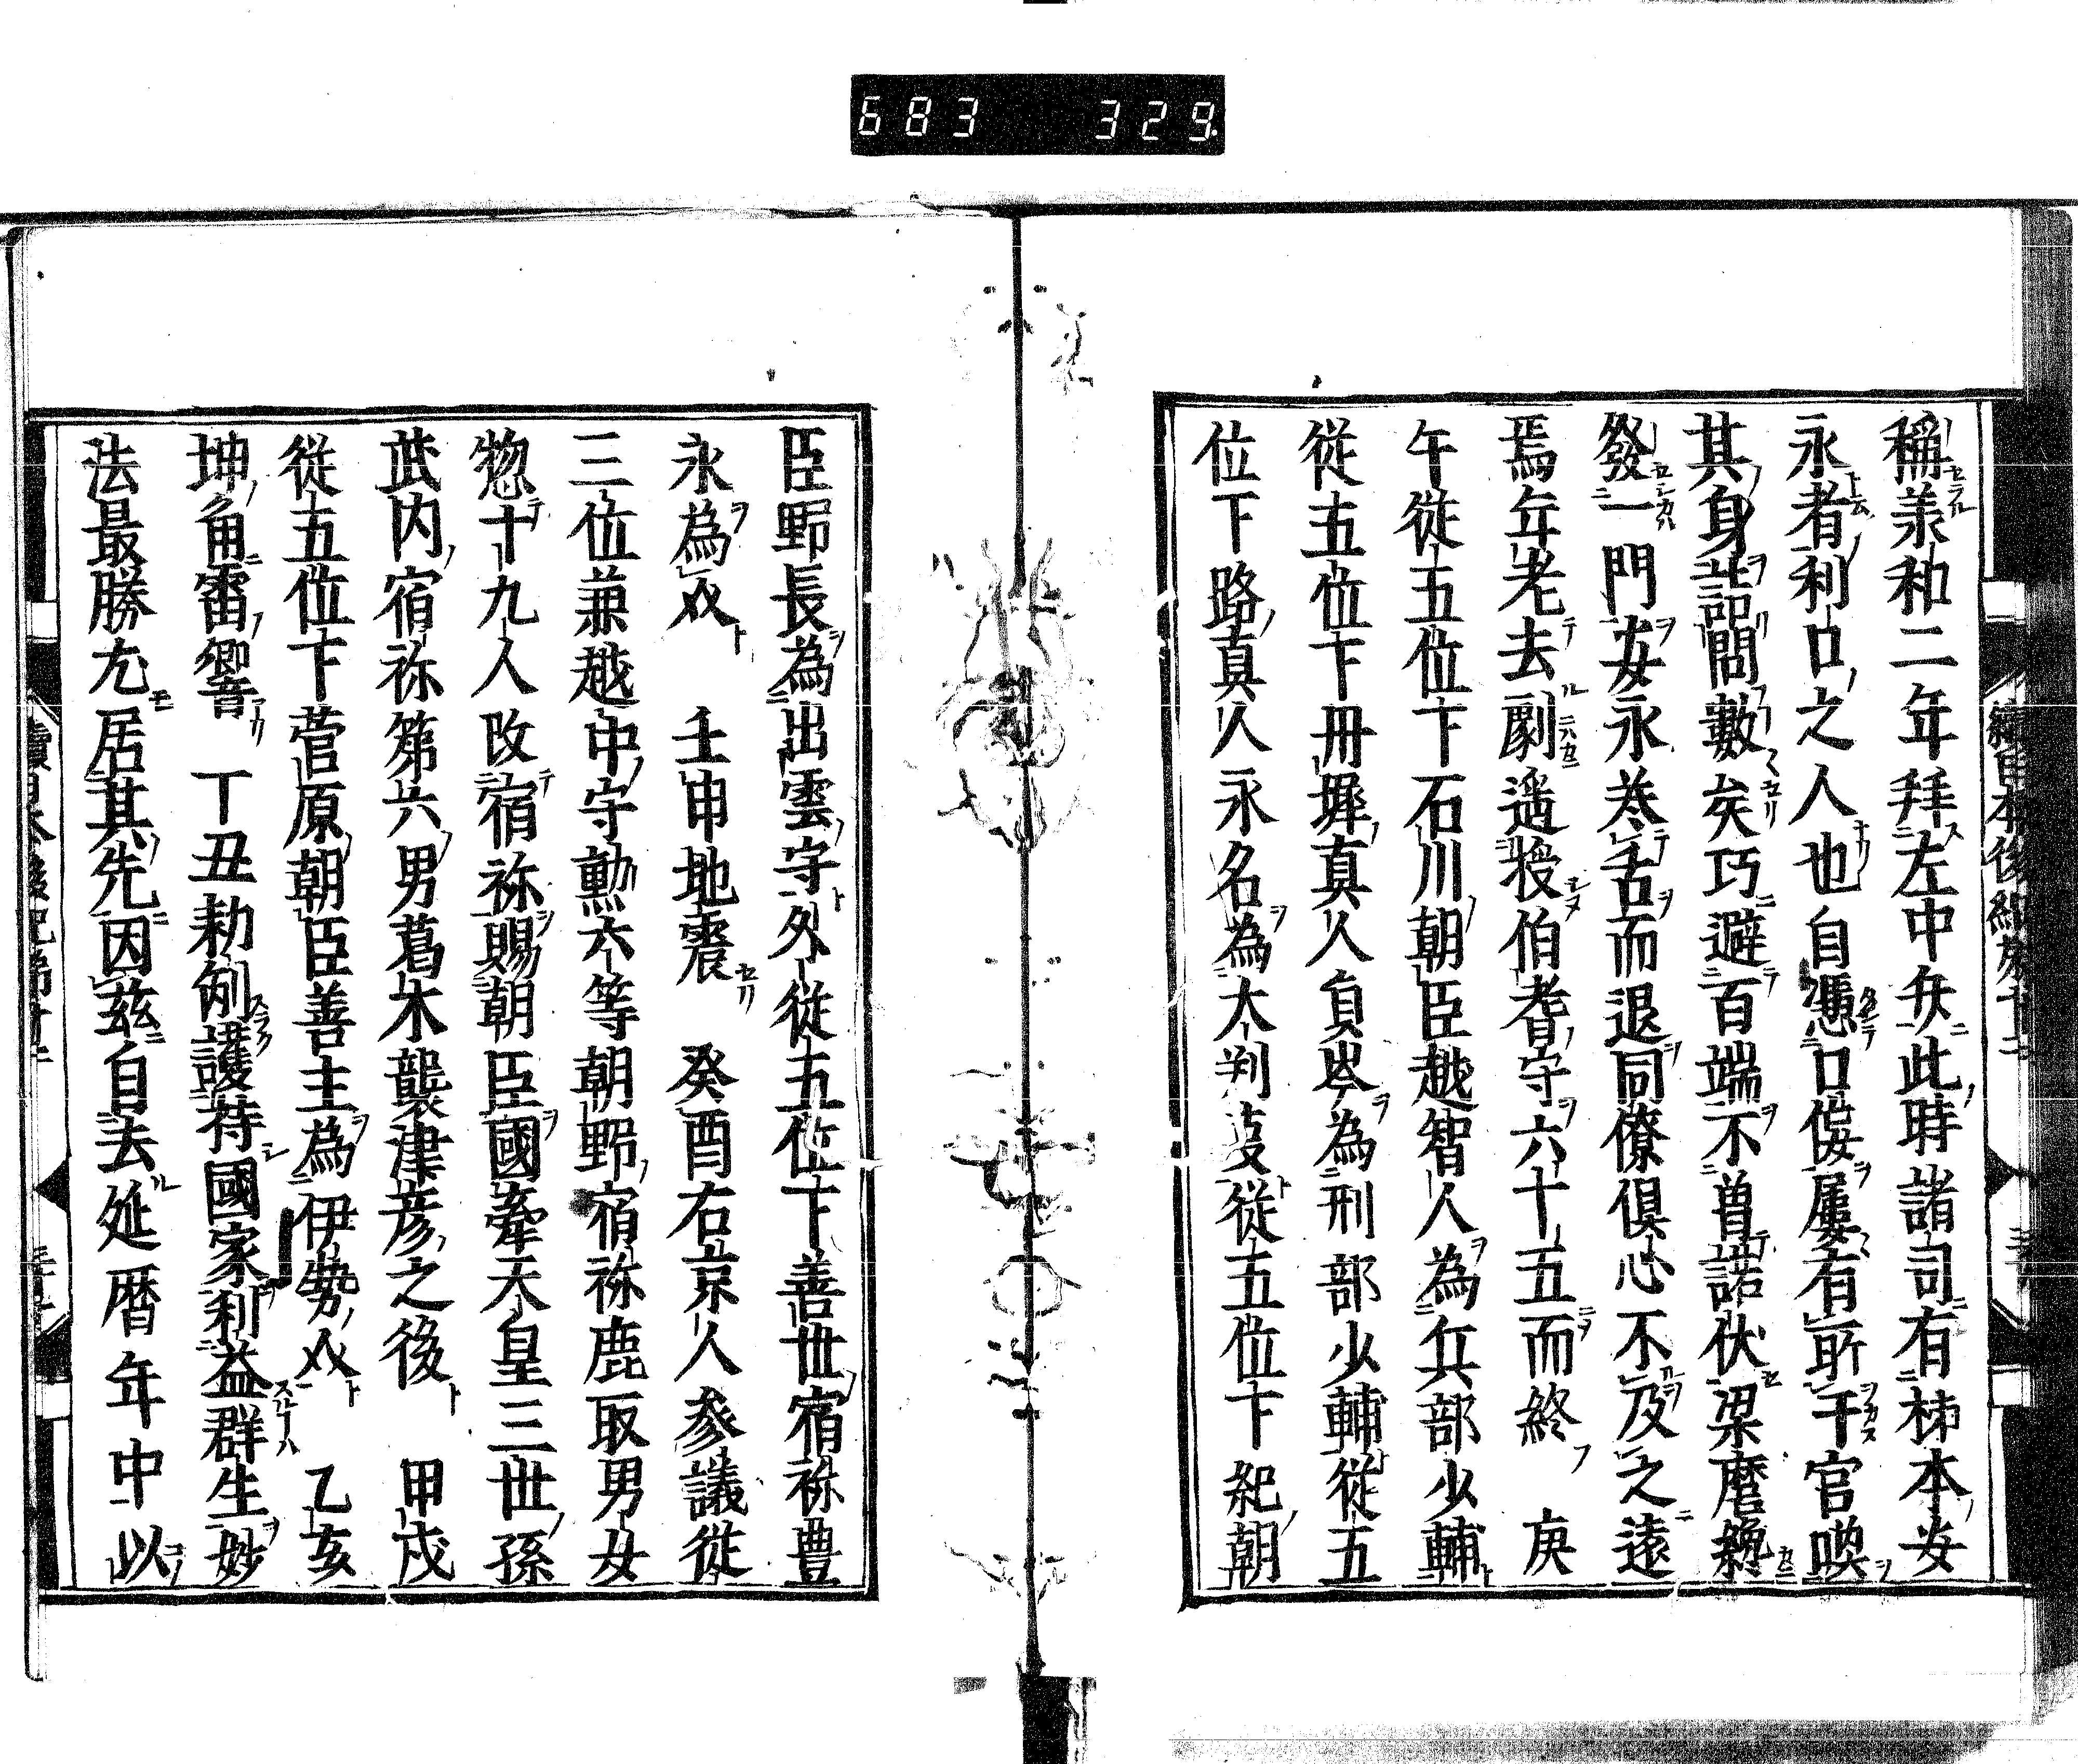 683 329
稱羡和二年拜左中弁此時諸司有栜本安
永者利口之人也自憑口偠屢有所干官喚
其身詰問數矣巧避百端不曽諾伏梁麿纔
發一門安永卷舌而退同僚倶心不及之遠
焉年老去劇遥授伯耆守六十五而終 庚
午從五位下石川朝臣越智人為兵部少輔
從五位下丹墀真人負岑為刑部少輔從五
位下路真人永名為大判事從五位下紀朝
臣野長為出雲守外從五位下善世宿祢豊
永為介 壬申地震 癸酉右京人參議從
三位兼越中守勳六等朝野宿祢鹿取男女
惣十九人改宿祢賜朝臣國牽天皇三世孫
武内宿祢第六男葛木襲津彦之後 甲戌
從五位下菅原朝臣善主為伊勢介 乙亥
坤角雷響 丁丑勅剏護持國家利益群生妙
法最勝尤居其先因兹自去延暦年中以